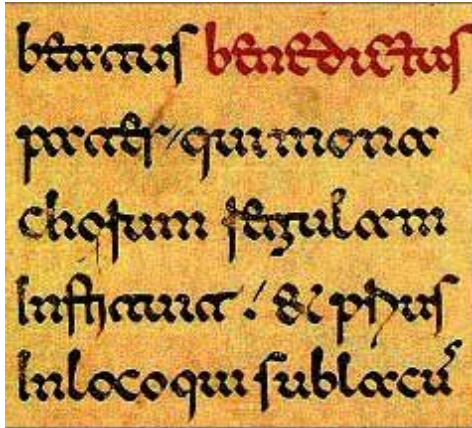 beatus benedictus
pater, qui mona
chorum regulam
Instituit . / & prius
In loco qui sublacū